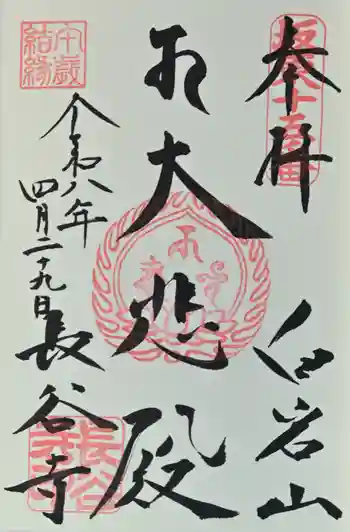 奉拝
坂東十五番
白岩山
𑖭
大悲殿
午歳
結縁
令和八年
四月二十九日
長谷寺